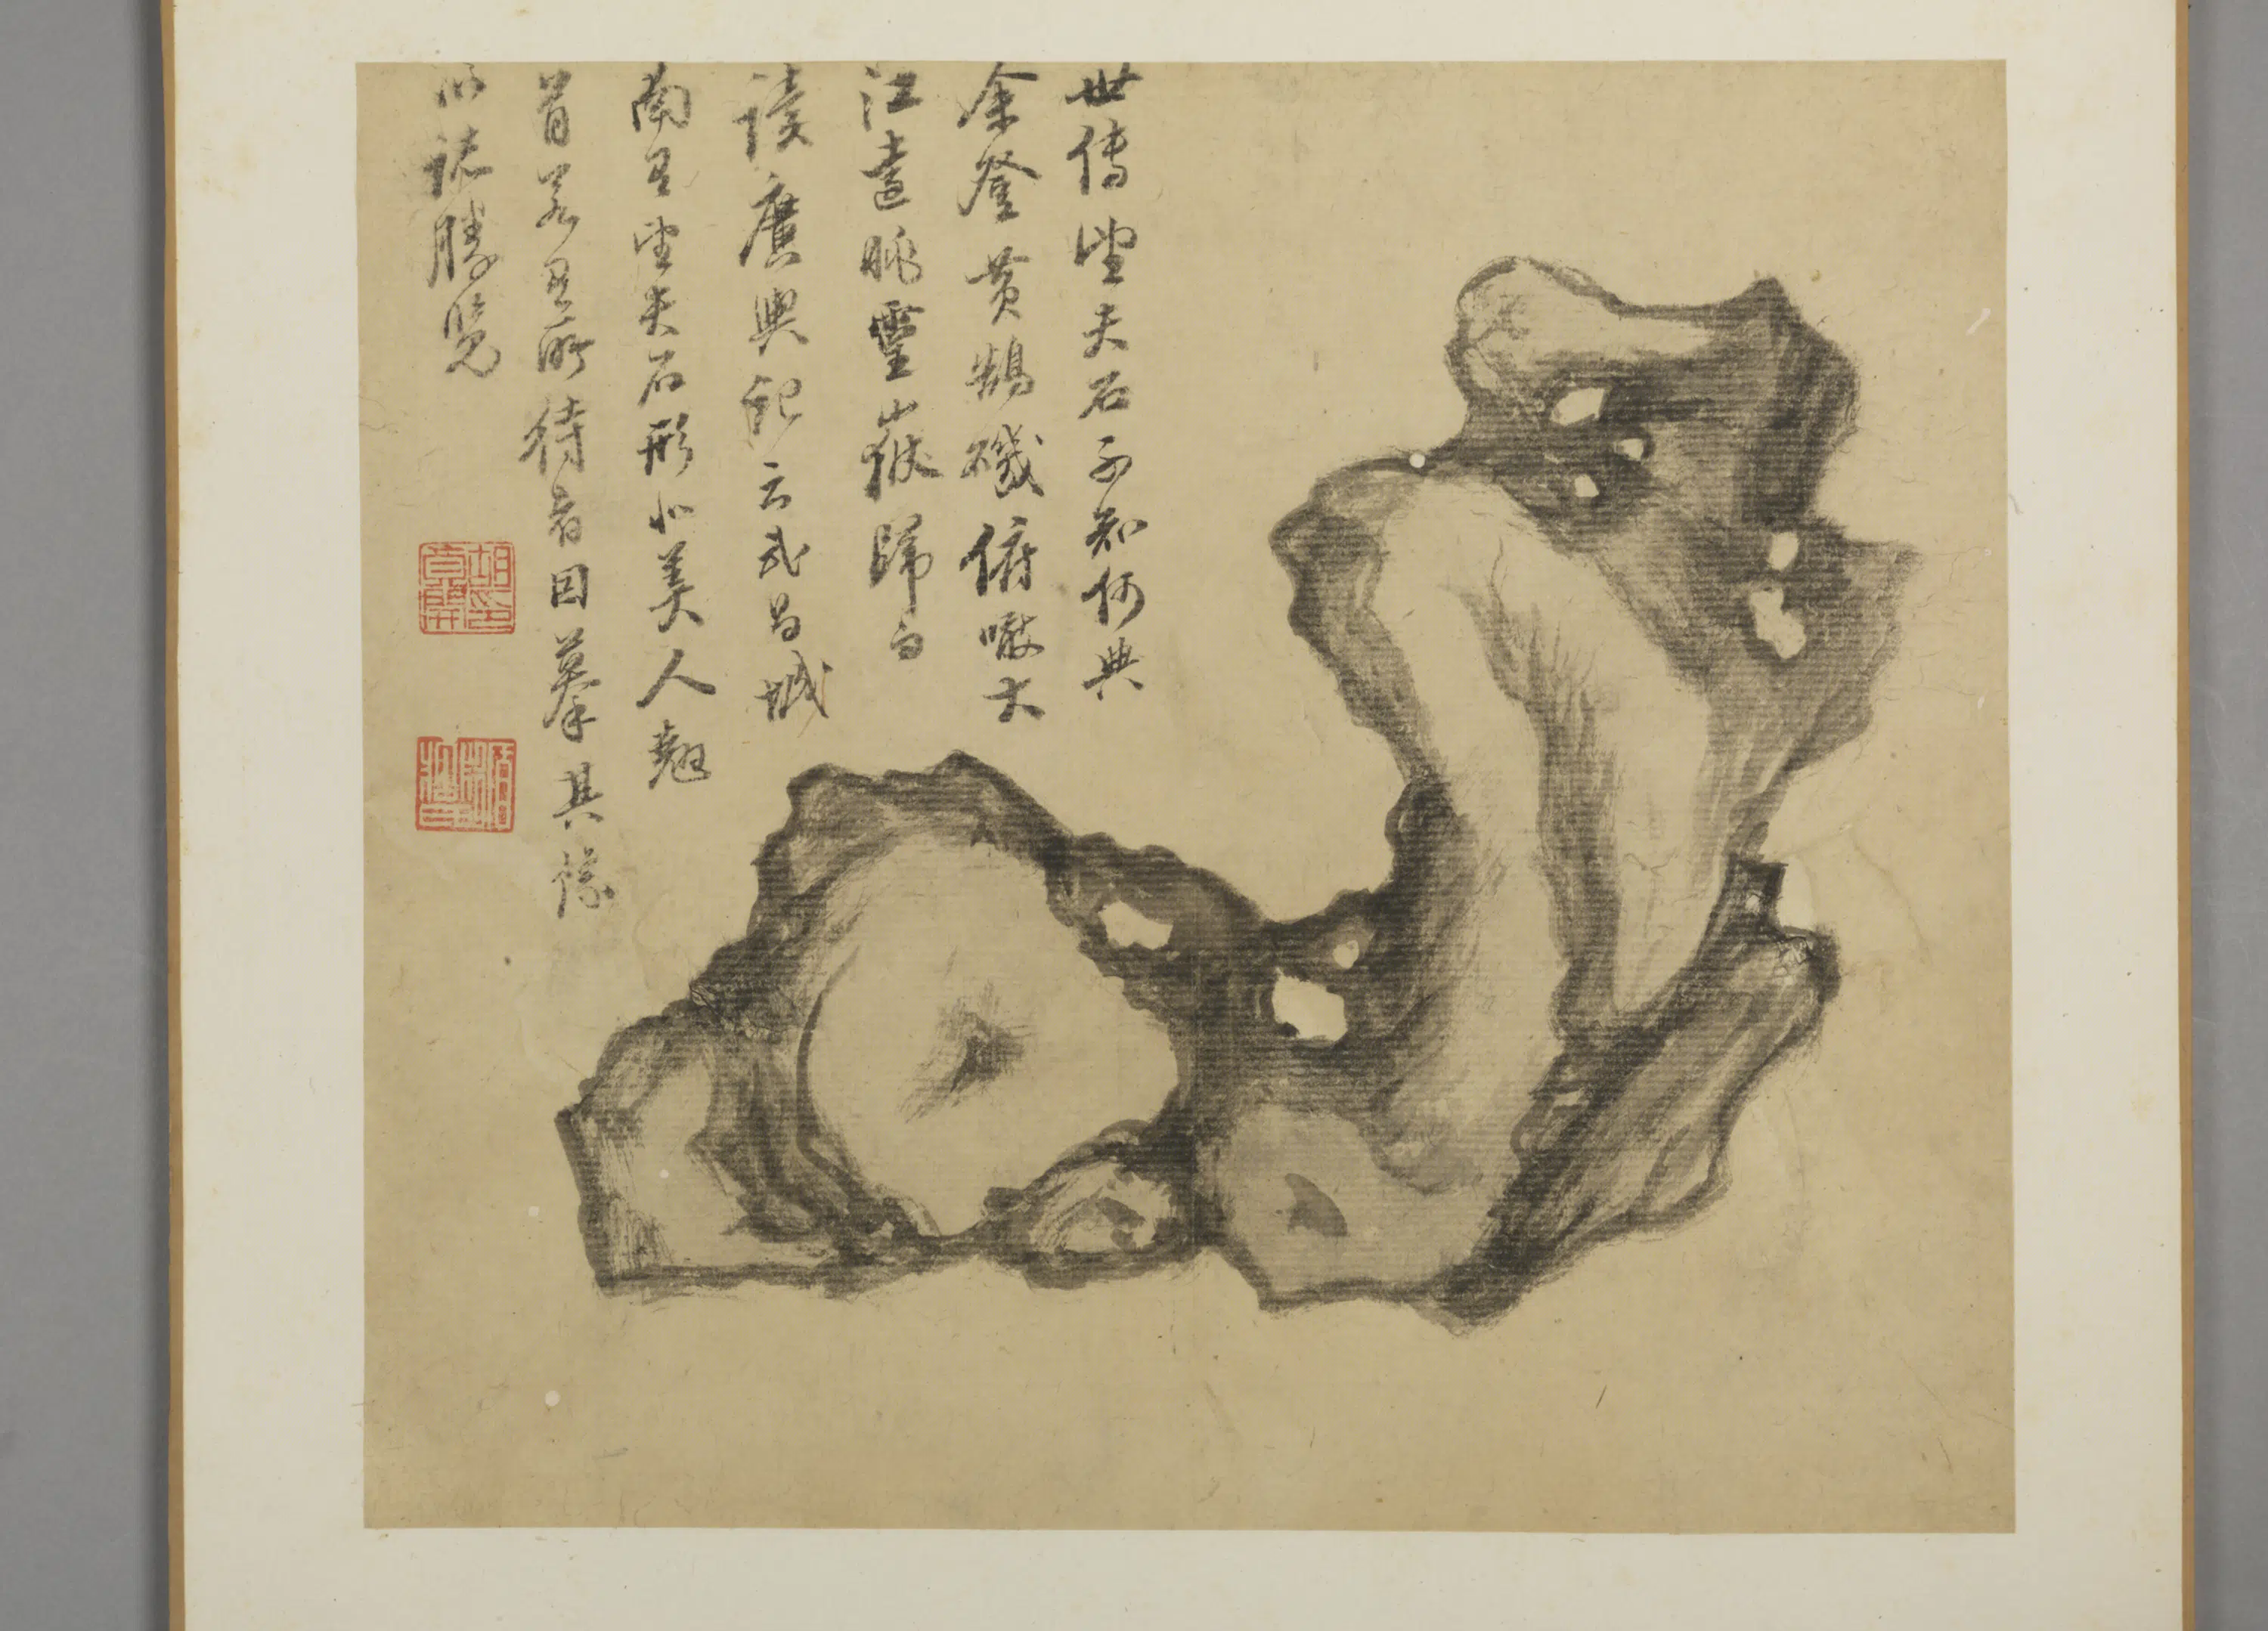 世傳望夫石不知何典
余登黃鵠磯俯瞰大
江遠眺靈嶽歸而
讀廣輿記云武昌城
南有望夫石形如美人翹
首若有所待者因摹其像
以誌勝覽